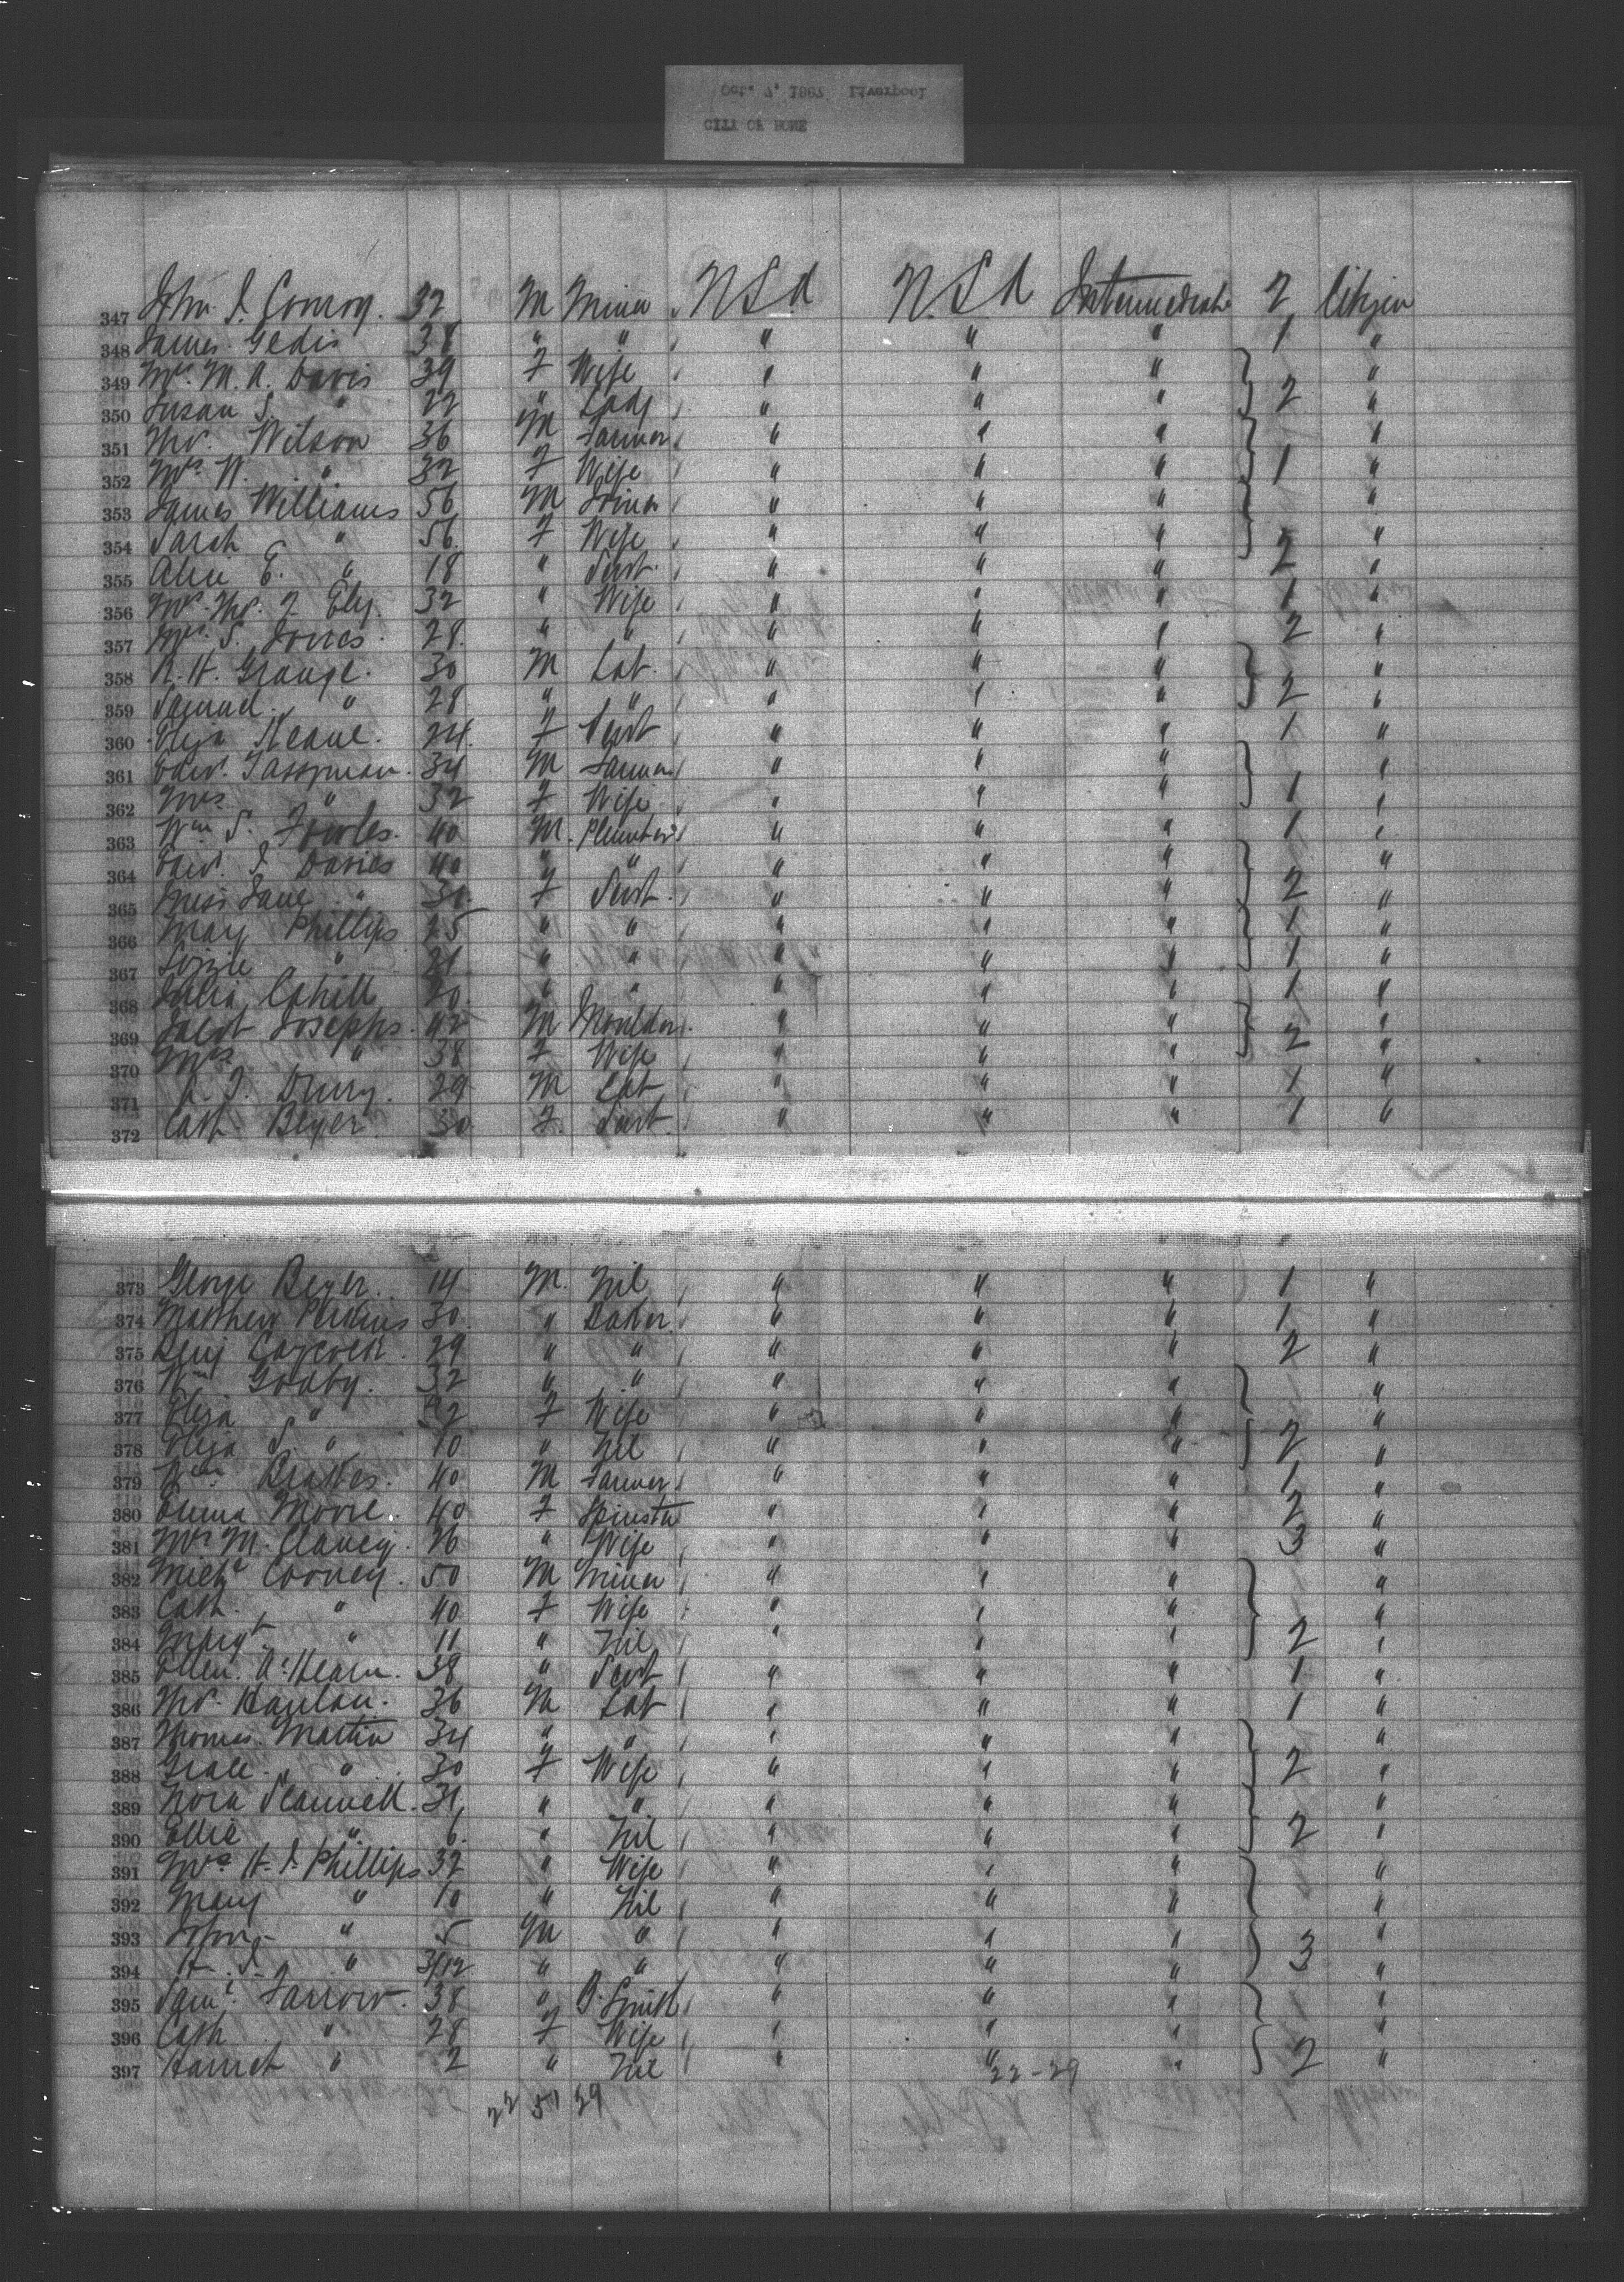 CITY OF ROME
347 John J. Conroy. 32 M Miner U S A U S A Intermediate 2 Citizen
348 James Gedis 38 " " " " " 1 "
349 Mrs. M. A. Davis 39 F Wife " " " "
350 Susan S. " 22 " Lady " " " 2 "
351 Mr. Wilson 36 M Farmer " " " "
352 Mrs W. " 32 F Wife " " " 1 "
353 James Williams 56 M Miner " " " "
354 Sarah " 56 F Wife " " " "
355 Alice E. " 18 " Servt. " " " 2 "
356 Mrs. 32 " Wife " " " 1 "
357 Mrs. S. Jones 28 " " " " " 2 "
358 R. H. Grange. 30 M Lab. " " " "
359 Samuel " 28 " " " " " 2 "
360 Eliza Keane. 24 F Servt " " " 1 "
361 Edwd. 34 M Farmer " " " "
362 Mrs " 32 F Wife " " " 1 "
363 Wm S. Fowles. 40 M. Plumber " " " 1 "
364 Edwd. J. Davies 40 " " " " " "
365 Miss Jane " 30 F Servt. " " " 2 "
366 Mary Phillips 25 " " " " " 1 "
367 Lizzie " 21 " " " " " 1 "
368 Julia Cahill 20 " " " " " 1 "
369 Jacob Josephs. 42 M Moulder " " " "
370 Mrs " 38 F Wife " " " 2 "
371 Drury. 29 M Lab " " " 1 "
372 Cath. Beyer 30 F. Servt. " " " 1 "
373 George Beyer. 14 M. Nil " " " 1 "
374 Matthew Perkins 30 " Labor. " " " 1 "
375 Benj 29 " " " " " 2 "
376 Wm Godby. 32 " " " " " "
377 Eliza " 32 F Wife " " " "
378 Eliza S. " 10 " Nil " " " 2 "
379 Wm 40 M Farmer " " " 1 "
380 Emma Moore. 40 F Spinster " " " 2 "
381 Mrs M. Clancy. 26 " Wife " " " 3 "
382 Michl Cooney. 50 M Miner " " " "
383 Cath. " 40 F Wife " " " "
384 Margt " 11 " Nil " " " 2 "
385 Ellen A'Hearn. 38 " Servt " " " 1 "
386 Mr. Hanlan. 36 M Lab " " " 1 "
387 Thomas Martin 34 " " " " " "
388 Grace " 30 F Wife " " " 2 "
389 Nora Scannell. 31 " " " " " "
390 Ellie " 6. " Nil " " " 2 "
391 Mrs H. J. Phillips 32 " Wife " " " "
392 Mary " 10 " Nil " " " "
393 John " 5 M " " " " 3 "
394 H. J. " 3/12 " " " " " "
395 Saml. Farrow. 38 " B. Smith " " " "
396 Cath " 28 F Wife " " " "
397 Harriet " 2 " Nil " " " 2 "
22-29
22 51 29